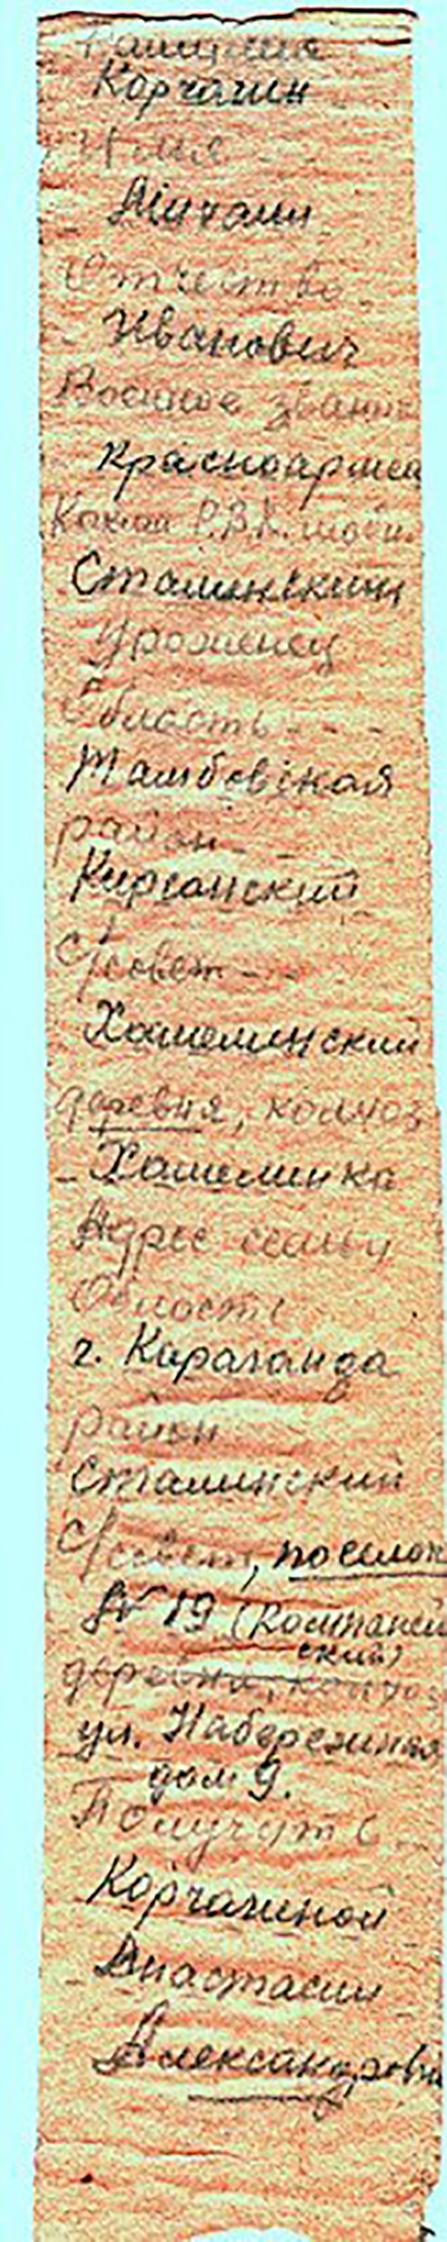 Фамилия
Корчагин
Имя
Михаил
Отчество
Иванович
Военное звание
Красноармеец
Каким Р.В.К. моби.
Сталинским
Уроженец
Область
Тамбовская
район
Кирсанский
с/совет
Хмелинский
деревня, колхоз
Хмелинка
Адрес семьи
Область
г. Караганда
район
Сталинский
с/совет, поселок
№ 19 (Компаней
ский)
деревня, колхоз
ул. Набережная
дом 9.
Получить
Корчагиной
Анастасии
Александровне